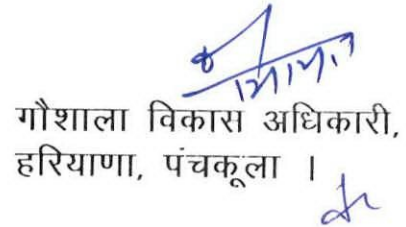 गौशाला विकास अधिकारी,
हरियाणा, पंचकूला ।